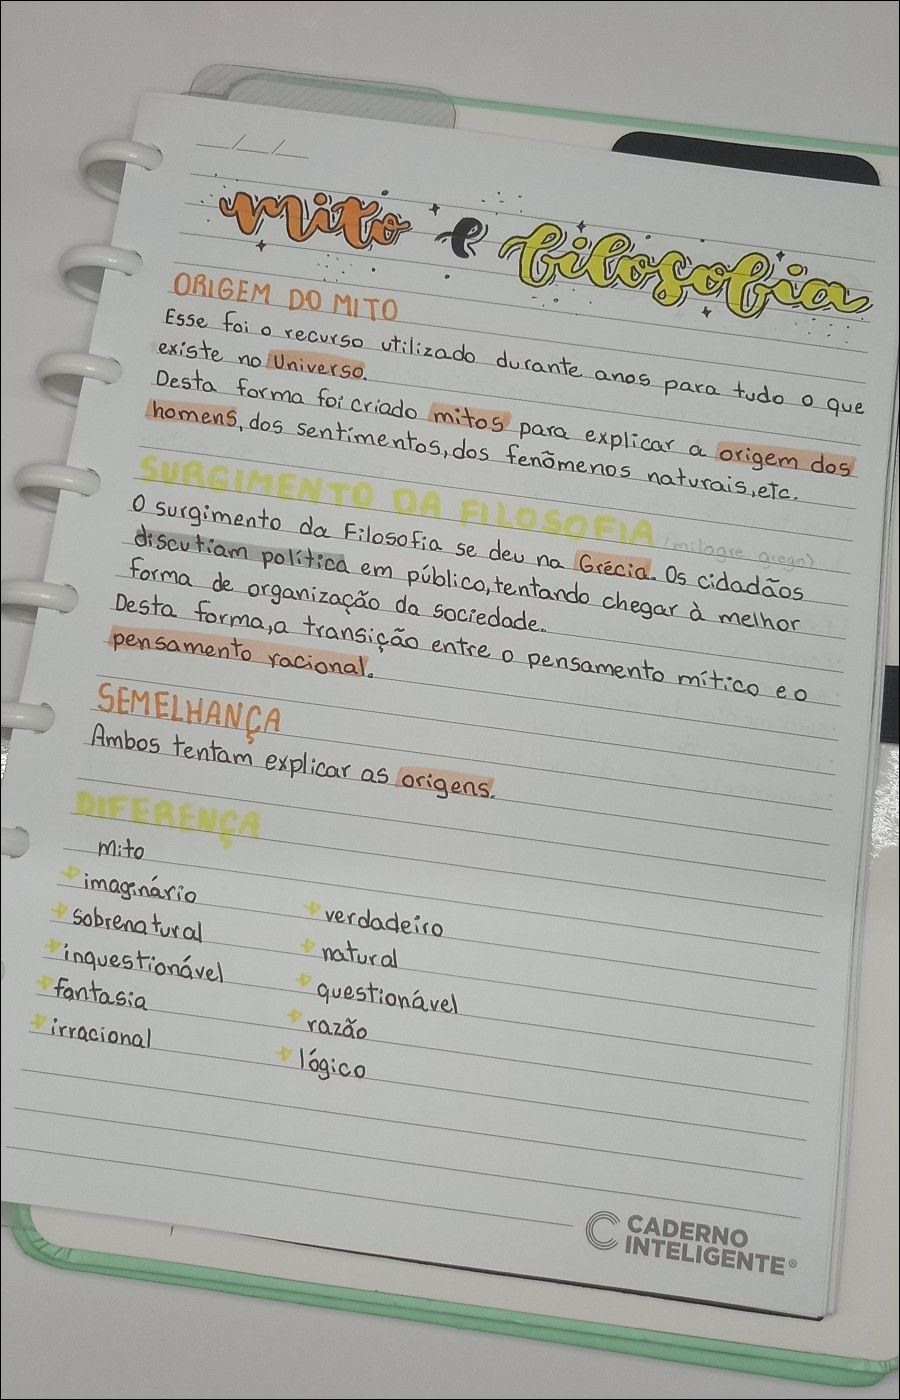 mito e filosofia
ORIGEM DO MITO
Esse foi o recurso utilizado durante anos para tudo o que
existe no Universo.
Desta forma foi criado mitos para explicar a origem dos
homens, dos sentimentos, dos fenômenos naturais, etc.
SURGIMENTO DA FILOSOFIA (milagre grego)
O surgimento da Filosofia se deu na Grécia. Os cidadãos
discutiam política em público, tentando chegar à melhor
forma de organização da sociedade.
Desta forma, a transição entre o pensamento mítico e o
pensamento racional.
SEMELHANÇA
Ambos tentam explicar as origens.
DIFERENÇA
mito
imaginário
sobrenatural
inquestionável
fantasia
irracional
verdadeiro
natural
questionável
razão
lógico
CADERNO
INTELIGENTE®